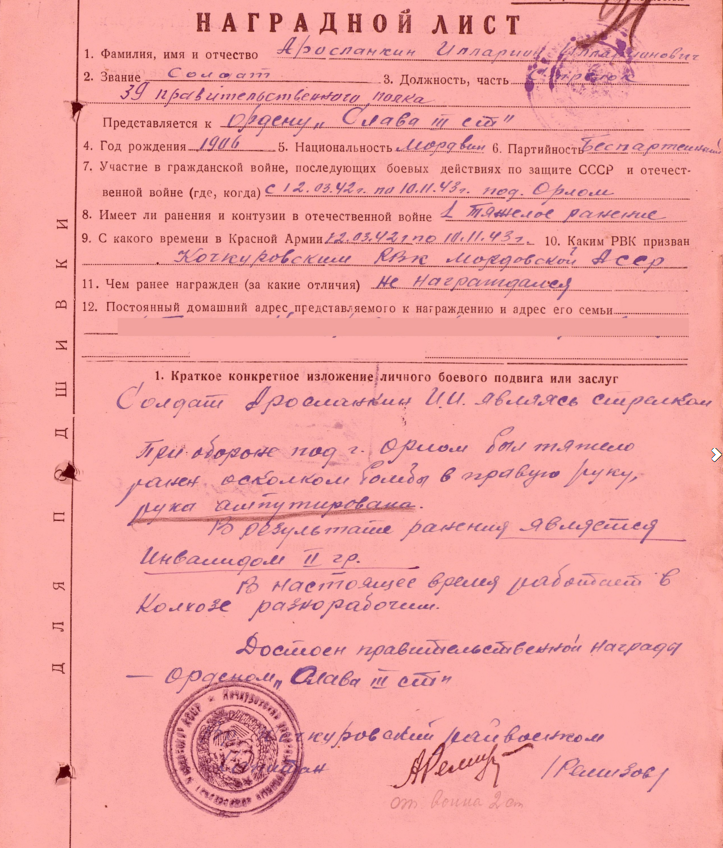 НАГРАДНОЙ ЛИСТ
1. Фамилия, имя и отчество Аросланкин Илларион
2. Звание Солдат 3. Должность, часть Стрелок
39 правительственного полка
Представляется к ордену „Слава III ст"
4. Год рождения 1906 5. Национальность Мордвин 6. Партийность Беспартейный
7. Участие в гражданской войне, последующих боевых действиях по защите СССР и отечест-
венной войне (где, когда) с 12.03.42г. по 10.11.43г. под. Орлом
8. Имеет ли ранения и контузии в отечественной войне 1 тяжелое ранение
9. С какого времени в Красной Армии 12.03.42г по 10.11.43г. 10. Каким РВК призван
Кочкуровским РВК Мордовской АССР
11. Чем ранее награжден (за какие отличия) не награждался
12. Постоянный домашний адрес представляемого к награждению и адрес его семьи
1. Краткое конкретное изложение личного боевого подвига или заслуг
Солдат Аросланкин И.И. являясь стралком
При обороне под г. Орлом был тяжело
ранен осколком бомбы в правую руку,
рука ампутирована.
В результате ранения является
Инвалидом II гр.
В настоящее время работает в
Колхозе разнорабочим.
Достоен правительственной награда
— Орденом „Слава III ст"
чкуровский райвоенком
(Ремизов)
ДЛЯ ПОДШИВКИ